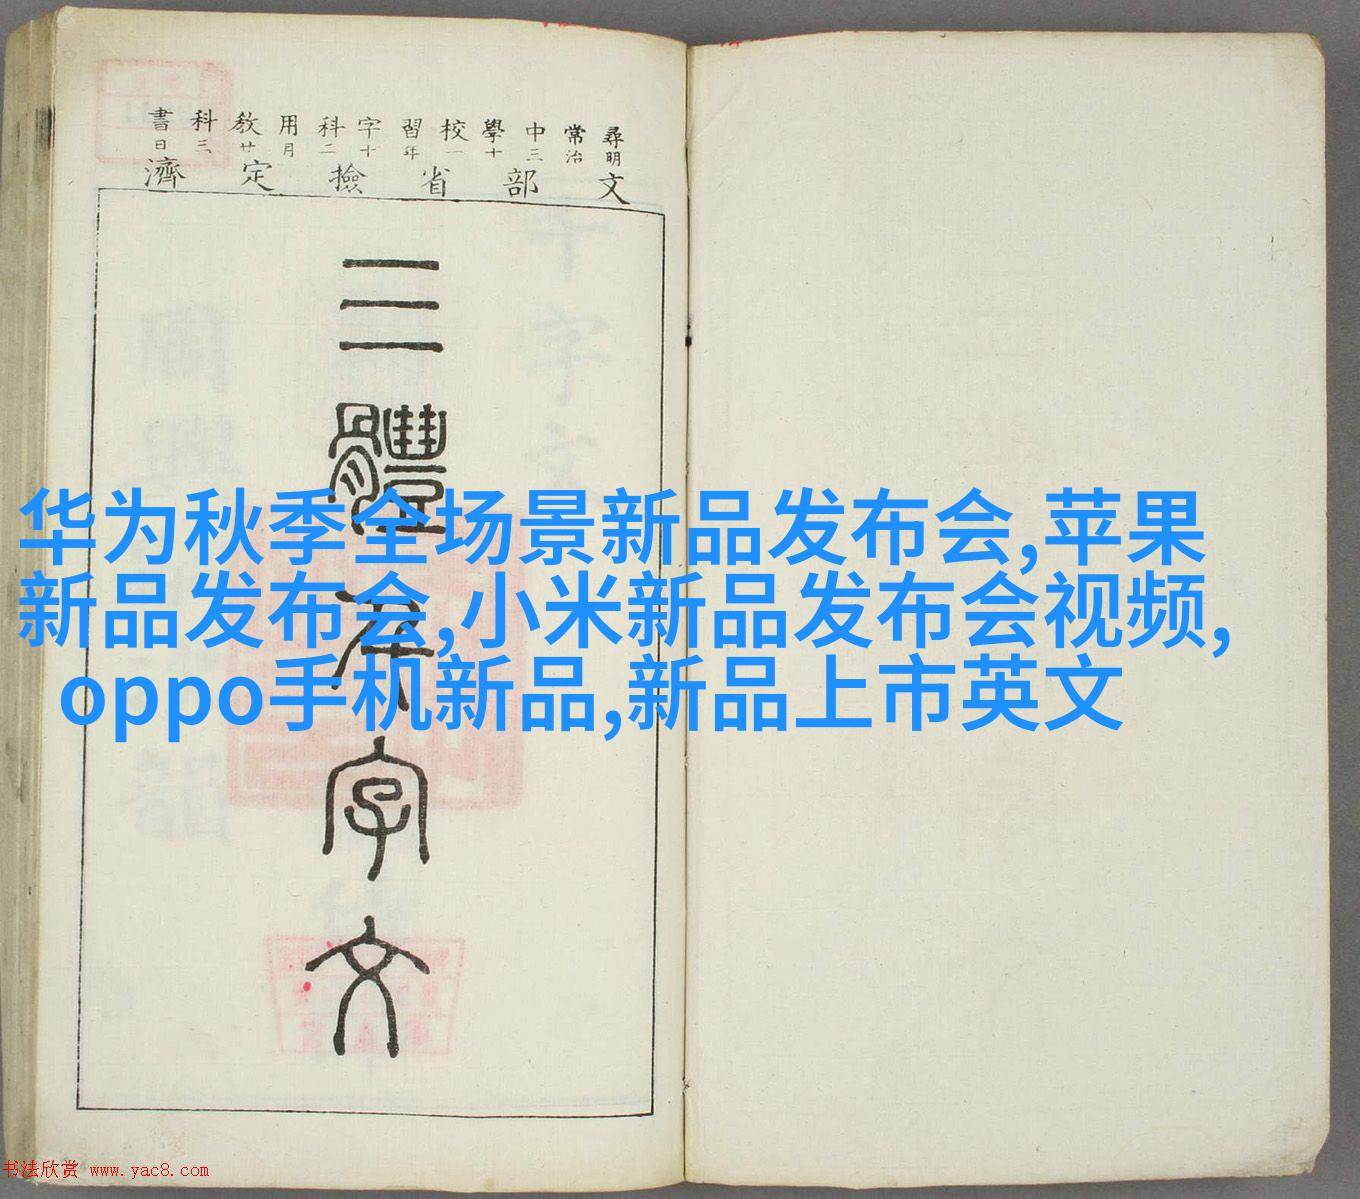 尋常中學校習字科用教科書
明治三十一年十二月廿三日
文部省撿定濟
三體千字文
华为秋季全场景新品发布会,苹果
新品发布会,小米新品发布会视频,
oppo手机新品,新品上市英文
书法欣赏 www.yac8.com